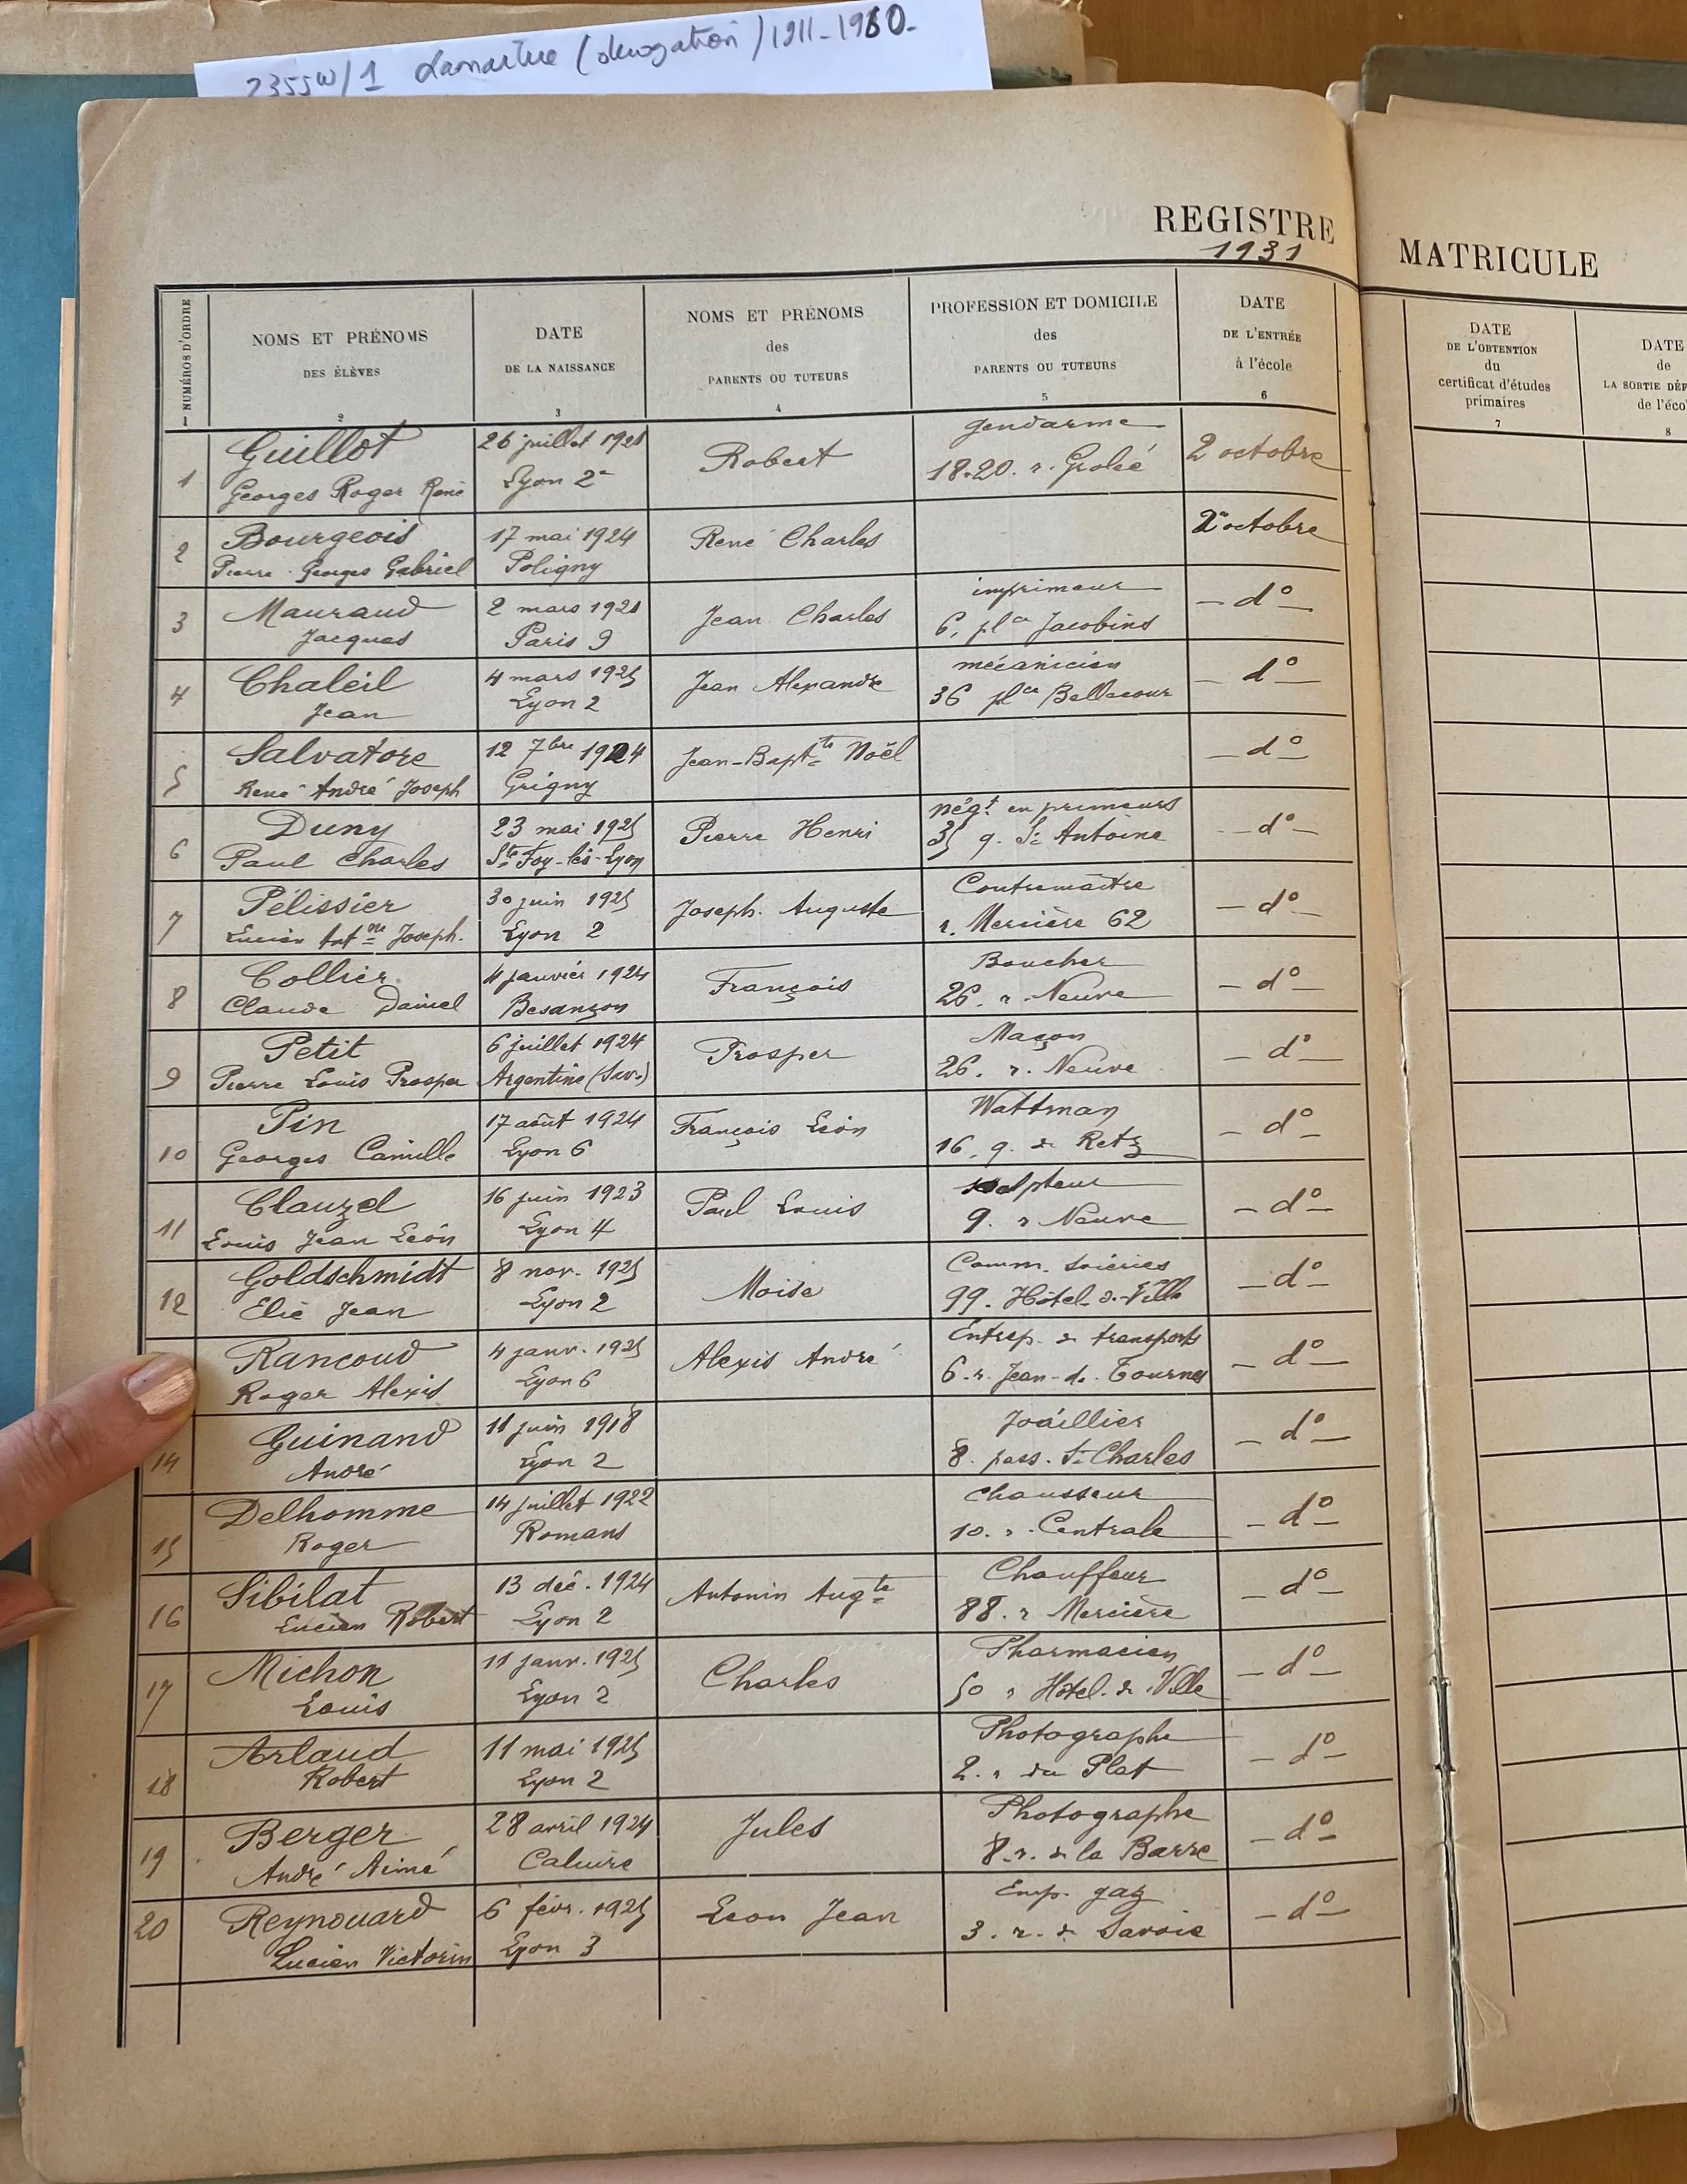 2355W/1 Lamartine (dérogation) 1911-1960-
REGISTRE
1931
NUMÉROS D'ORDRE
NOMS ET PRÉNOMS
DES ÉLÈVES
DATE
DE LA NAISSANCE
NOMS ET PRÉNOMS
des
PARENTS OU TUTEURS
PROFESSION ET DOMICILE
des
PARENTS OU TUTEURS
DATE
DE L'ENTRÉE
à l'école
1 2 3 4 5 6
1 Guillot 26 juillet 1921 Robert gendarme 2 octobre
Georges Roger René Lyon 2e 18-20. r. Grolée
2 Bourgeois 17 mai 1924 René Charles 2 octobre
Pierre Georges Gabriel Poligny
3 Mauraud 2 mars 1921 Jean Charles imprimeur - d° -
Jacques Paris 9 6, plce Jacobins
4 Chaleil 4 mars 1925 Jean Alexandre mécanicien - d° -
Jean Lyon 2 36 plce Bellecour
5 Salvatore 12 7bre 1924 Jean-Bapte Noël - d° -
René André Joseph Grigny
6 Duny 23 mai 1925 Pierre Henri négt en primeurs - d° -
Paul Charles Ste Foy-lès-Lyon 35 q. St Antoine
7 Pélissier 30 juin 1925 Joseph. Auguste Contremaître - d° -
Lucien Antne Joseph. Lyon 2 r. Mercière 62
8 Collier 4 janvier 1924 François Boucher - d° -
Claude Daniel Besançon 26. r. Neuve
9 Petit 6 juillet 1924 Prosper Maçon - d° -
Pierre Louis Prosper Argentine (Sav.) 26. r. Neuve
10 Pin 17 août 1924 François Léon Wattman - d° -
Georges Camille Lyon 6 16. q. de Retz
11 Clauzel 16 juin 1923 Paul Louis sculpteur - d° -
Louis Jean Léon Lyon 4 9. r Neuve
12 Goldschmidt 8 nov. 1925 Moïse Comm. soieries - d° -
Elie Jean Lyon 2 99. Hôtel-d-Ville
Rancoud 4 janv. 1925 Alexis André Entrep. de transports - d° -
Roger Alexis Lyon 6 6. r. Jean-de-Tournes
14 Guinand 11 juin 1918 Joaillier - d° -
André Lyon 2 8. pass. St Charles
15 Delhomme 14 juillet 1922 Chausseur - d° -
Roger Romans 10. r. Centrale
16 Sibilat 13 déc. 1924 Antonin Augte Chauffeur - d° -
Lucien Robert Lyon 2 88. r Mercière
17 Michon 11 janv. 1925 Charles Pharmacien - d° -
Louis Lyon 2 50 r Hôtel. de Ville
18 Arlaud 11 mai 1925 Photographe - d° -
Robert Lyon 2 2. r du Plat
19 Berger 28 avril 1924 Jules Photographe - d° -
André Aimé Caluire 8. r. de la Barre
20 Reynouard 6 févr. 1925 Léon Jean Emp. gaz - d° -
Lucien Victorin Lyon 3 3. r. de Savoie
MATRICULE
DATE
DE L'OBTENTION
du
certificat d'études
primaires
7
DATE
de
LA SORTIE DÉF
de l'éco
8